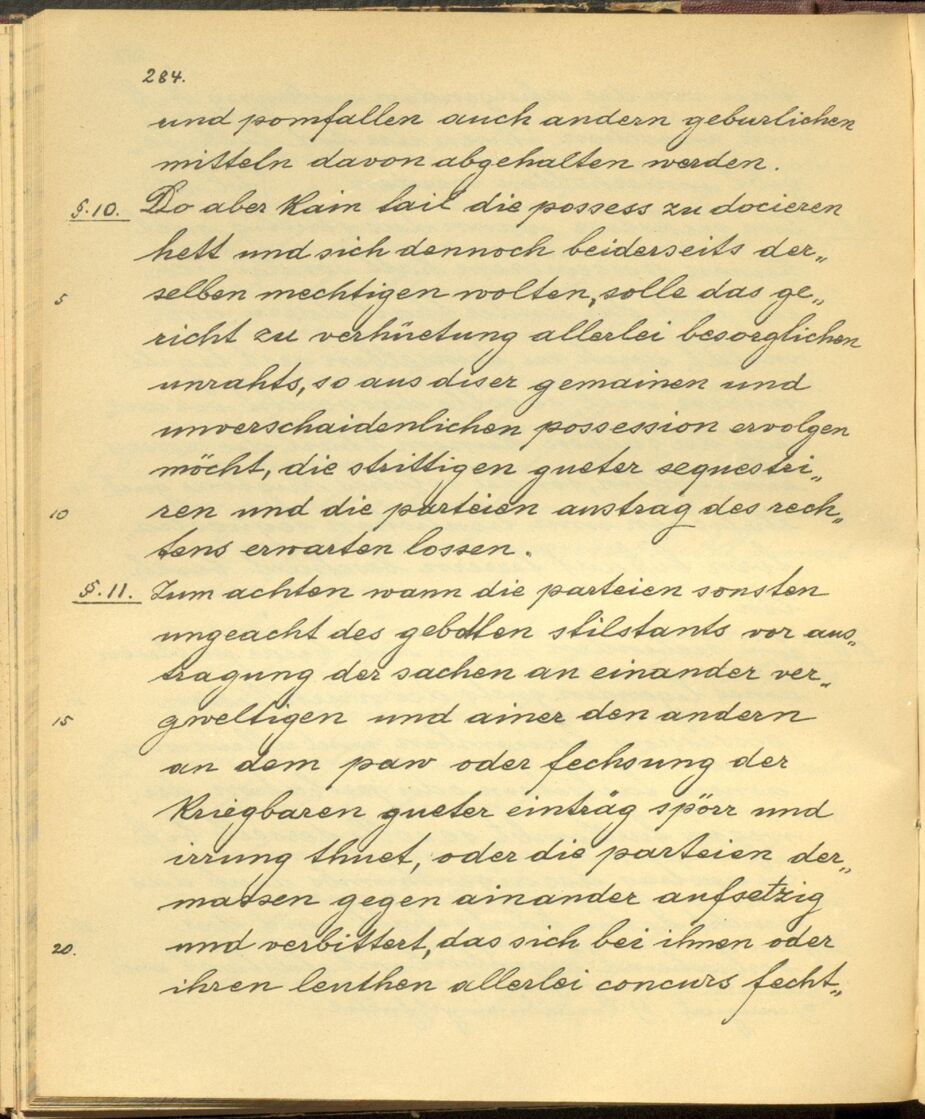 284.
und pomfallen auch andern geburlichen
mitteln davon abgehalten werden.
§.10. Do aber kain tail die possess zu docieren
hett und sich dennoch beiderseits der„
5 selben mechtigen wolten, solle das ge„
richt zu verhüetung allerlei besorglichen
unrahts, so aus diser gemainen und
unverschaidenlichen possession ervolgen
möcht, die strittigen gueter sequestri„
10 ren und die parteien austrag des rech„
tens erwarten lossen.
§.11. Zum achten wann die parteien sonsten
ungeacht des gebotten stilstants vor aus„
tragung der sachen an einander ver„
15 gweltigen und ainer den andern
an dem paw oder fechsung der
kriegbaren gueter einträg spörr und
irrung thuet, oder die parteien der„
massen gegen ainander aufsetzig
20. und verbittert, das sich bei ihnen oder
ihren leuthen allerlei concurs fecht„